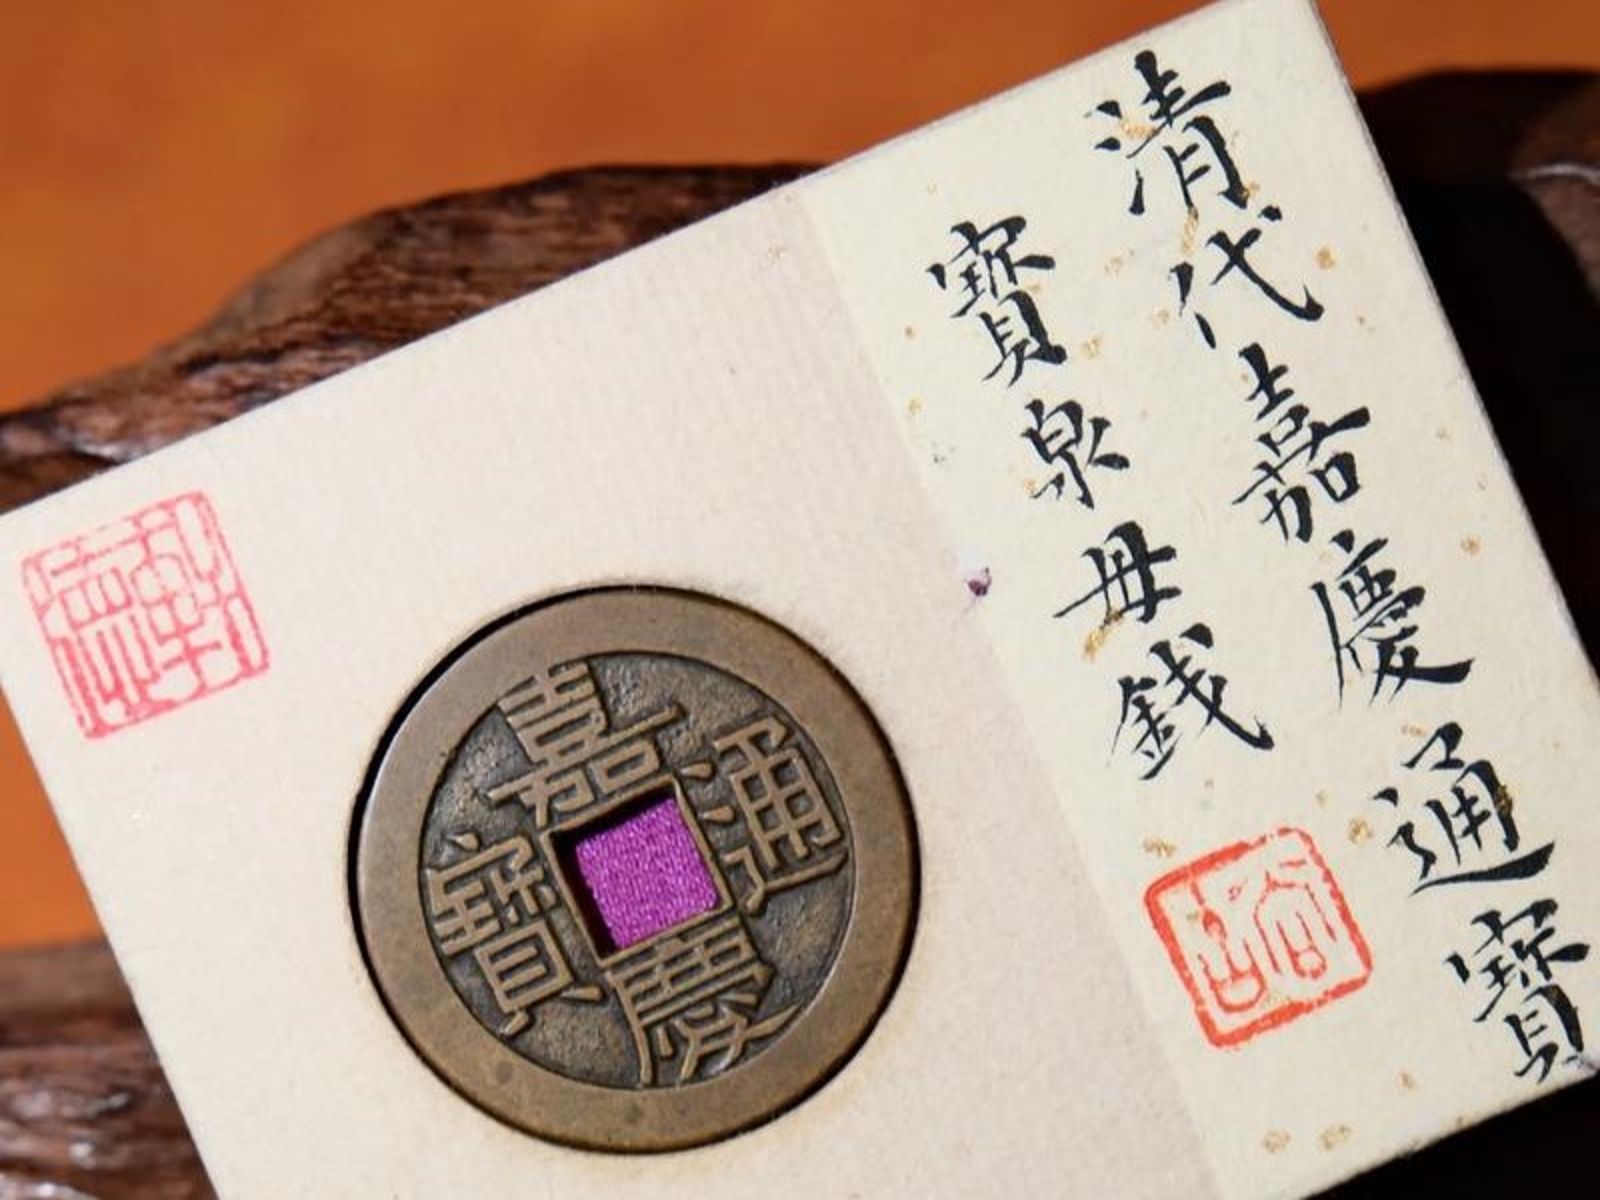 清代嘉慶通寶
寶泉母錢
嘉慶通寶